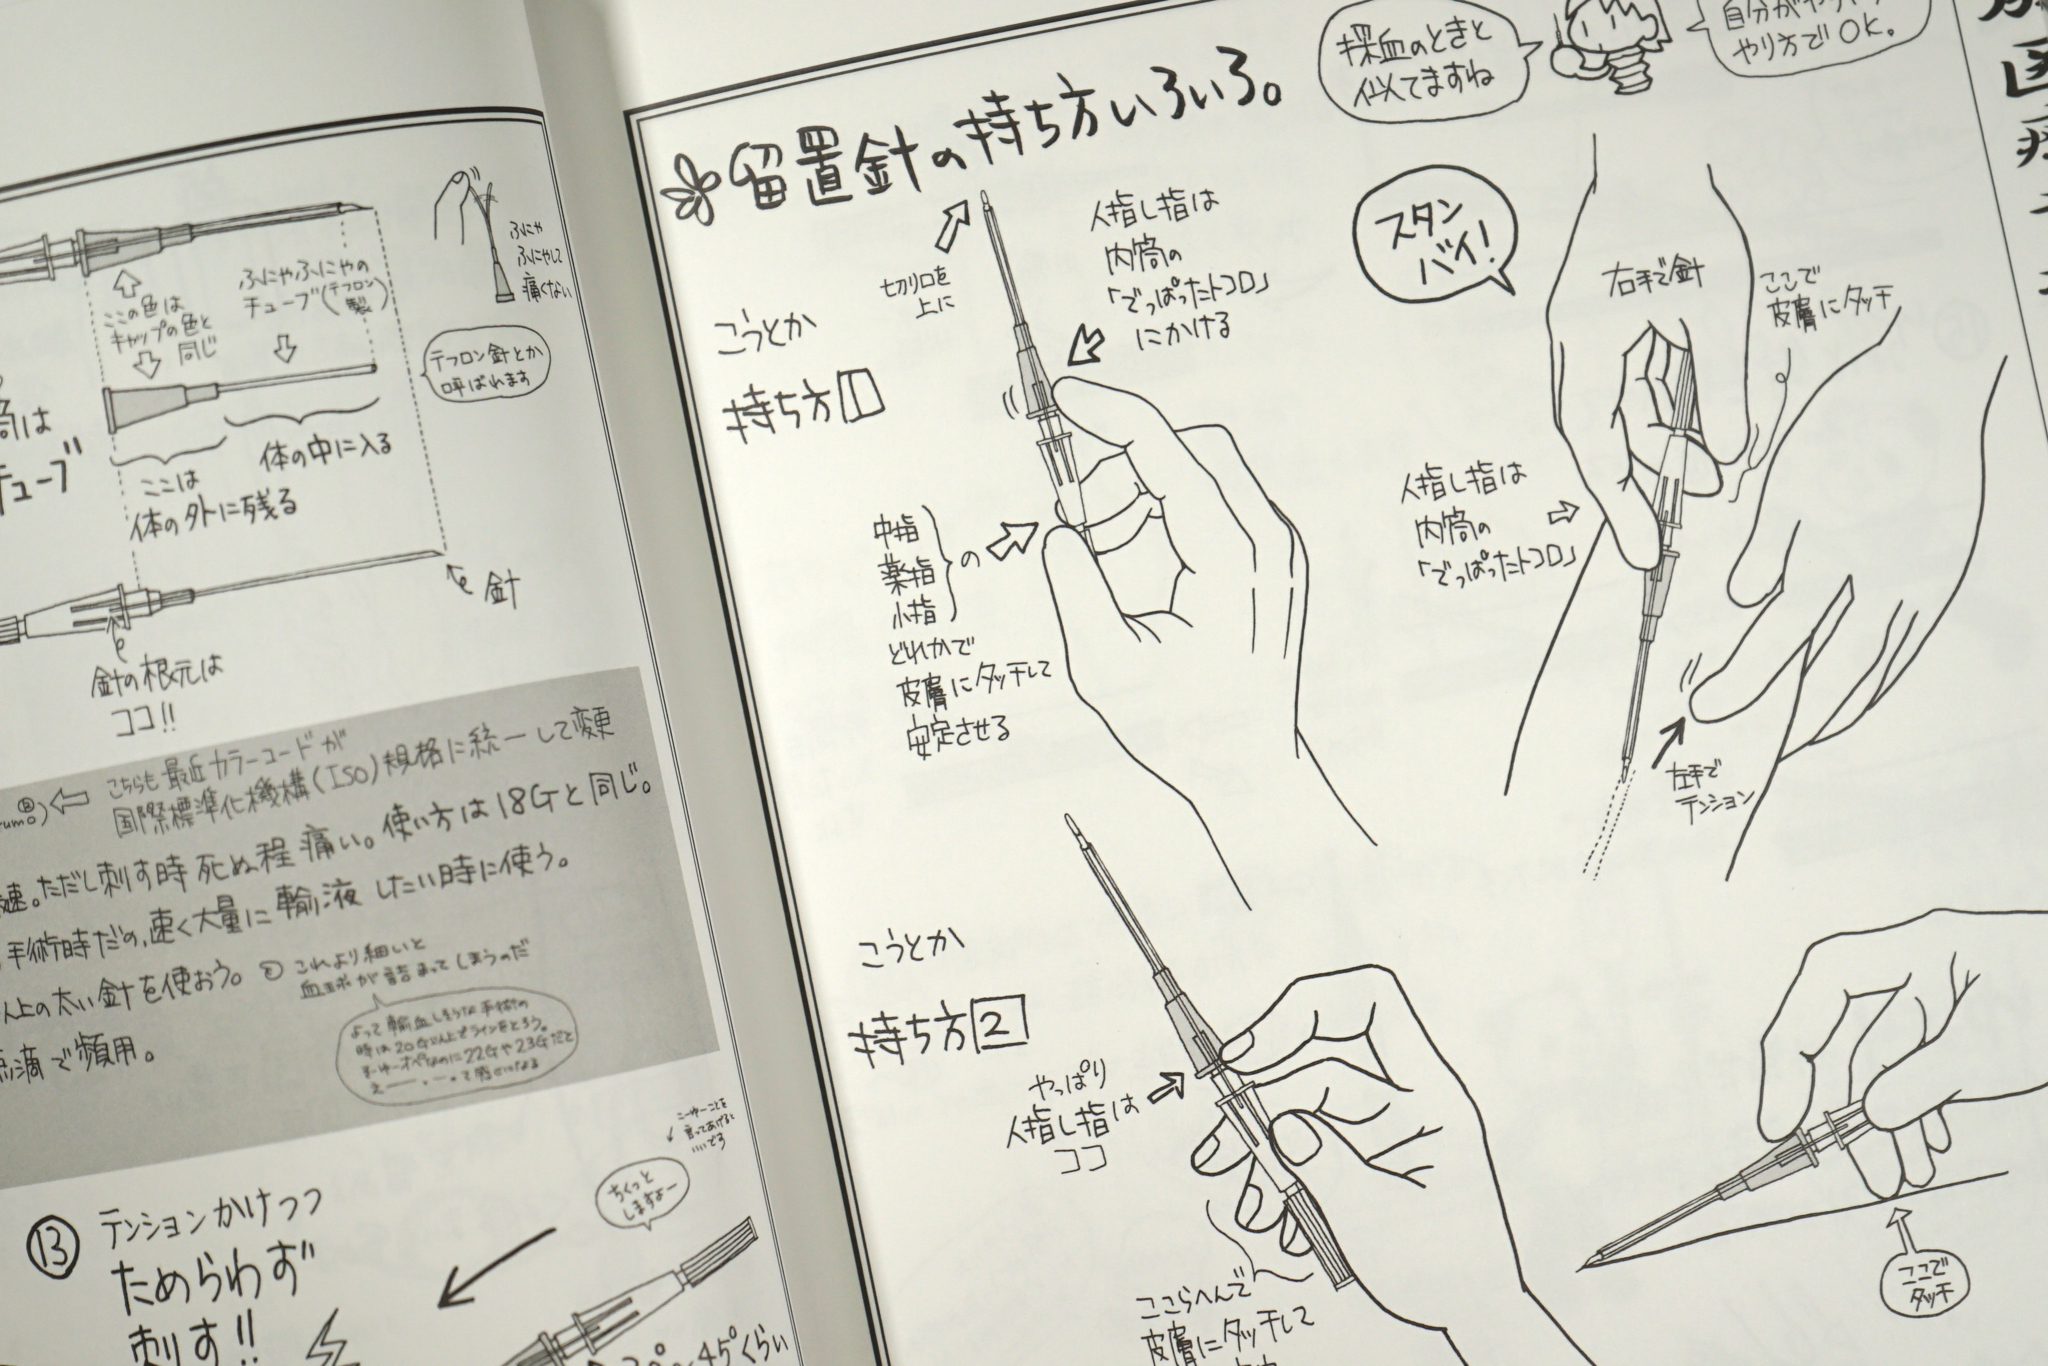 ふにゃ
ふにゃして
痛くない
ここの色は
キャップの色と
同じ
ふにゃふにゃの
チューブ(テフロン製)
テフロン針とか
呼ばれます
筒は
チューブ
体の中に入る
ここは
体の外に残る
針
針の根元は
ココ!!
こちらも最近カラーコードが
国際標準化機構(ISO)規格に統一して変更
速。ただし刺す時死ぬ程痛い。使い方は18Gと同じ。
手術時だの、速く大量に輸液したい時に使う。
以上の太い針を使おう。
これより細いと
血球が詰まってしまうのだ
よって輸血しそうな手術の
時は20G以上でラインをとろう。
オペなのに22Gや23Gだと
点滴で頻用。
こーゆーことを
言ってあげると
いいでろ
ちくっと
しますよー
⑬ テンションかけつつ
ためらわず
刺す!!
45°くらい
留置針の持ち方いろいろ。
採血のときと
似てますね
やり方でOK。
切り口を
上に
人指し指は
内筒の
「でっぱったトコロ」
にかける
こうとか
持ち方1
中指
薬指
小指
の
どれかで
皮膚にタッチして
安定させる
スタン
バイ!
右手で針
ここで
皮膚にタッチ
人指し指は
内筒の
「でっぱったトコロ」
左手で
テンション
こうとか
持ち方2
やっぱり
人指し指は
ココ
ここらへんで
皮膚にタッチして
ここで
タッチ